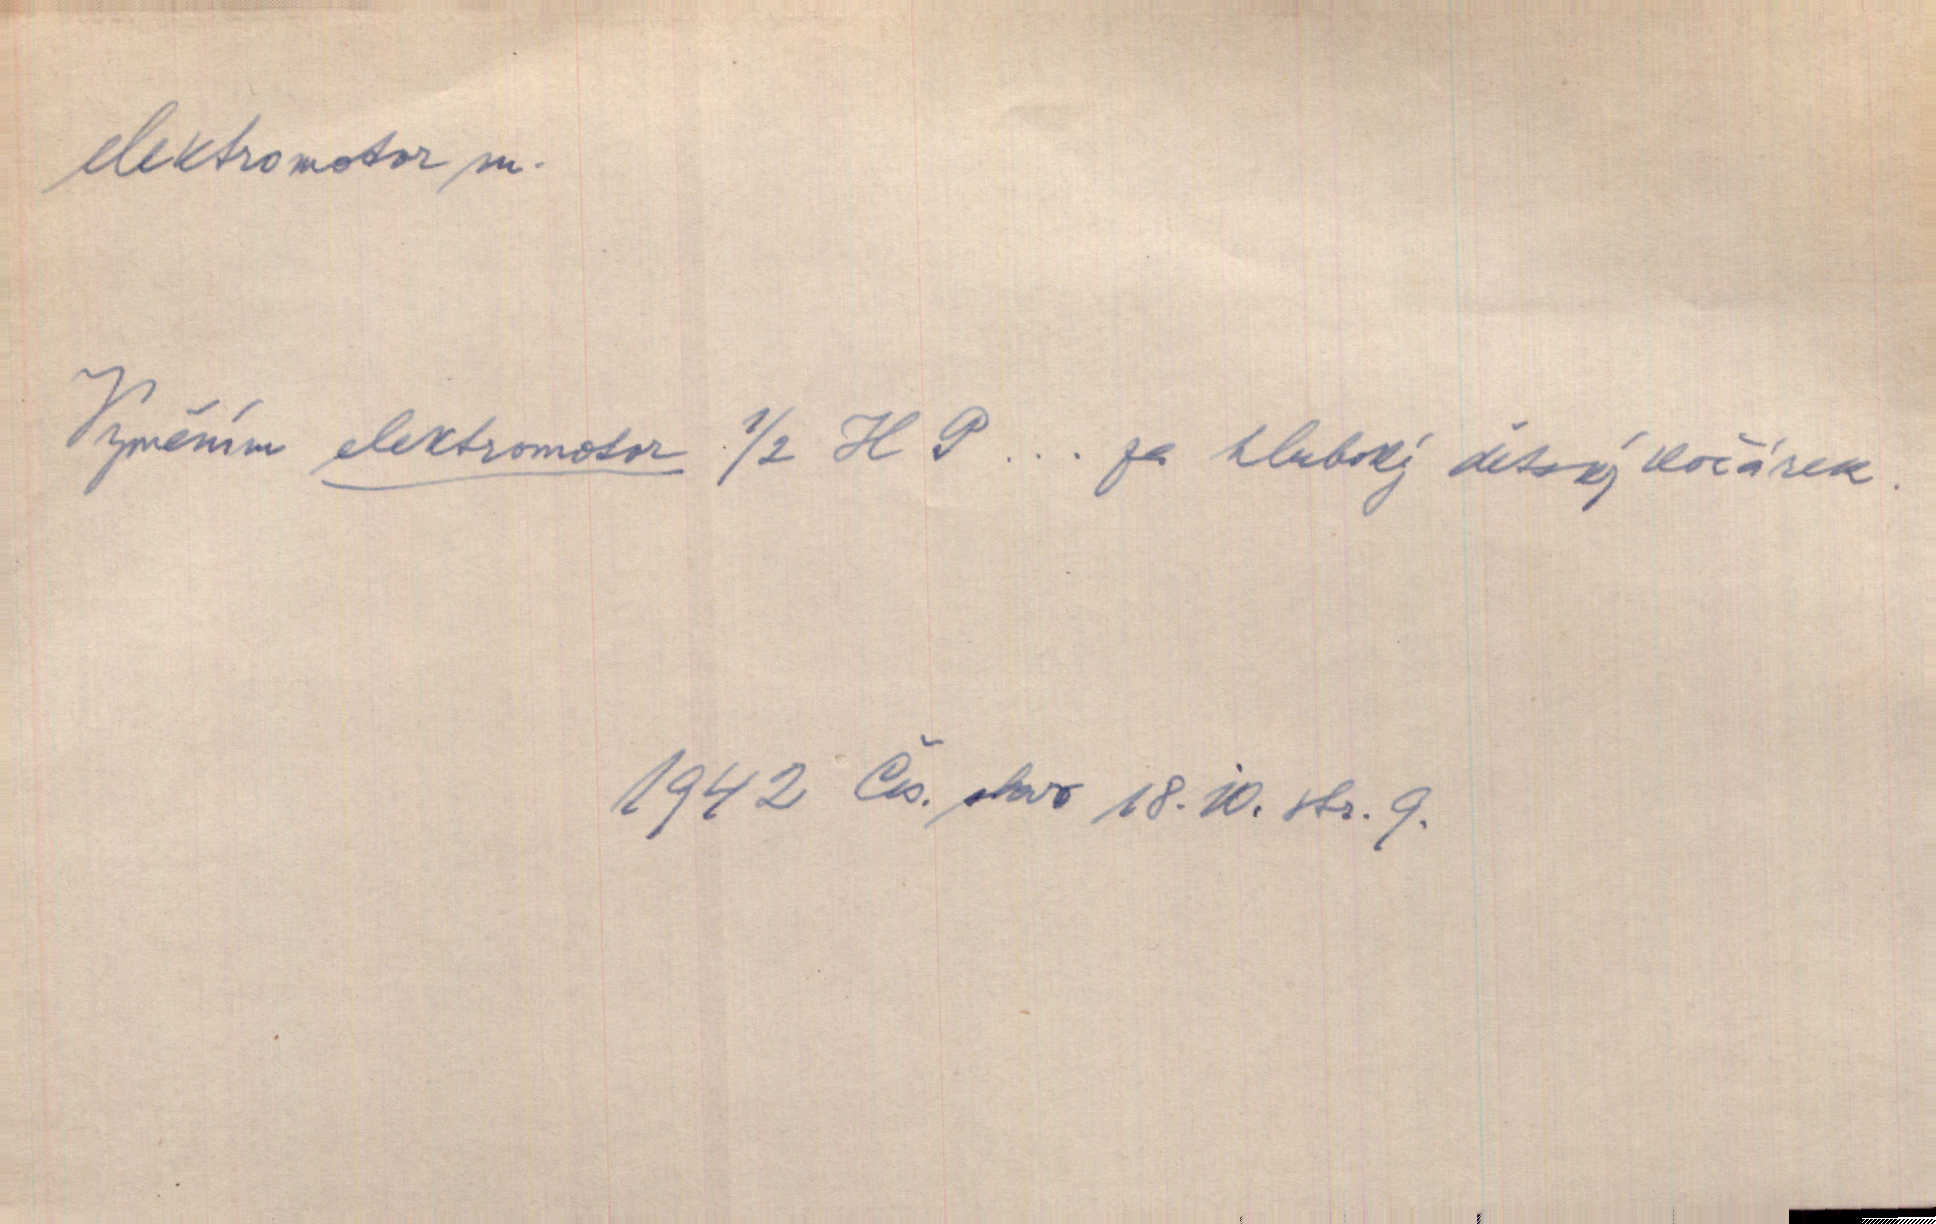 elektromotor m.
Vyměním elektromotor 1/2 HP ... za hluboký dětský kočárek.
1942 Čes. slovo 18. 10. str. 9.